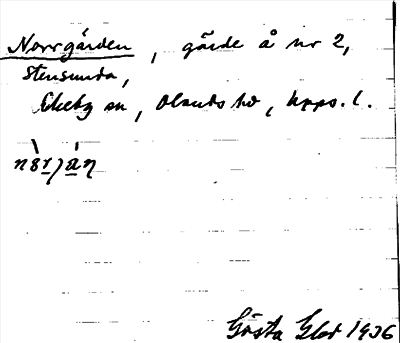 Norrgärden, gärde å nr 2,
Stensunda,
Ekeby sn, Olands hd, Upps. l.
Gösta Glad 1936